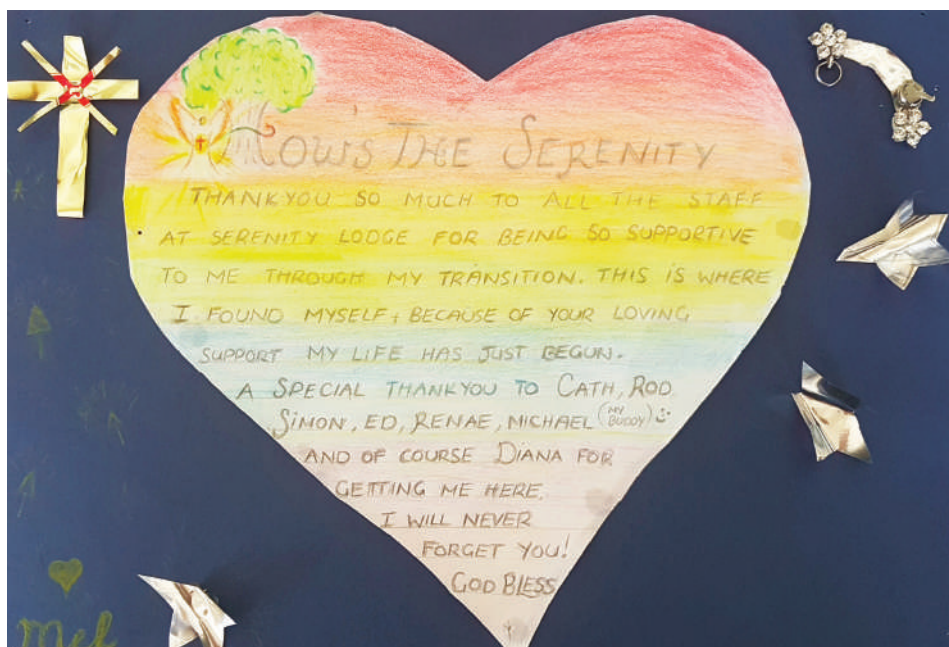 How's The Serenity
THANKYOU SO MUCH TO ALL THE STAFF
AT SERENITY LODGE FOR BEING SO SUPPORTIVE
TO ME THROUGH MY TRANSITION. THIS IS WHERE
I FOUND MYSELF + BECAUSE OF YOUR LOVING
SUPPORT MY LIFE HAS JUST BEGUN.
A SPECIAL THANKYOU TO CATH, ROD
SIMON, ED, RENAE, MICHAEL (MY BUDDY) :)
AND OF COURSE DIANA FOR
GETTING ME HERE.
I WILL NEVER
FORGET YOU!
GOD BLESS
Mel